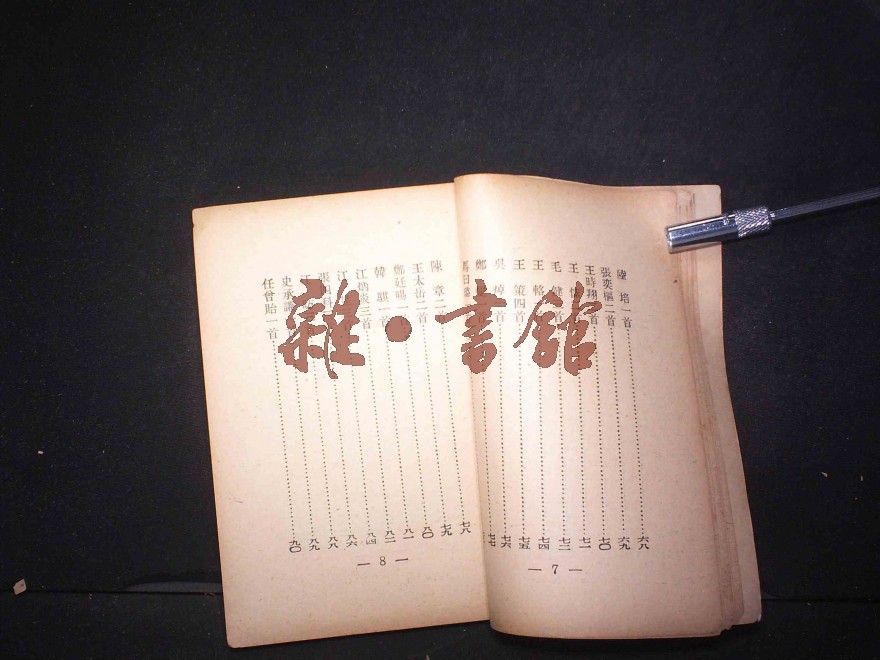 陸培一首……六八
張奕樞二首……六九
王時翔 首……七〇
王 ……七一
毛健 ……七二
王輅 首……七四
王策四首……七五
吳焯 首……七六
鄭 ……七七
馬曰
— 7 —
陳章二首……七八
王太岳二首……七九
鄭廷暘一首……八〇
韓騏一首……八一
江炳炎三首……八二
江 ……八四
張 ……八六
江 ……八八
史承謙 ……八九
任曾貽一首……九〇
— 8 —
雜·書館